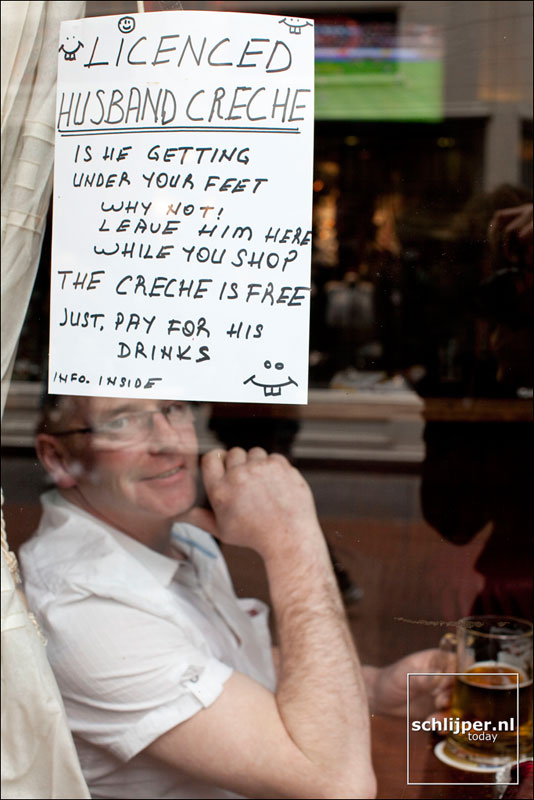 LICENCED
HUSBAND CRECHE
IS HE GETTING
UNDER YOUR FEET
WHY NOT!
LEAVE HIM HERE
WHILE YOU SHOP
THE CRECHE IS FREE
JUST. PAY FOR HIS
DRINKS
INFO. INSIDE
schlijper.nl
today